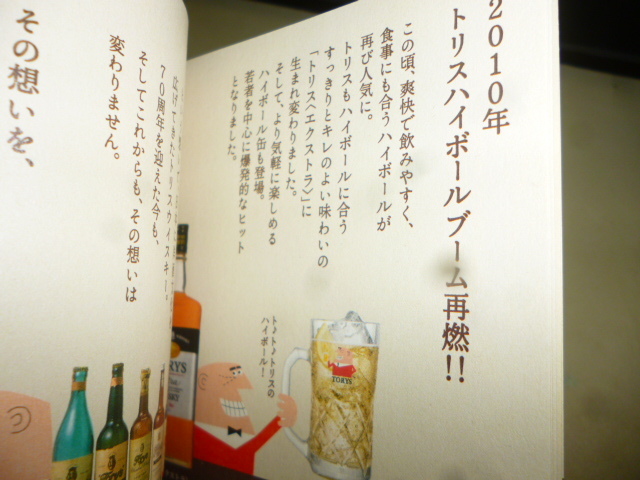 2010年
トリスハイボールブーム再燃!!
この頃、爽快で飲みやすく、
食事にも合うハイボールが
再び人気に。
トリスもハイボールに合う
すっきりとキレのよい味わいの
「トリス〈エクストラ〉」に
生まれ変わりました。
そして、より気軽に楽しめる
ハイボール缶も登場。
若者を中心に爆発的なヒット
となりました。
ト♪ト♪トリスの
ハイボール!
TORYS
TORYS
広げてきたトリスウイスキー。
70周年を迎えた今も、
そしてこれからも、その想いは
変わりません。
その想いを、